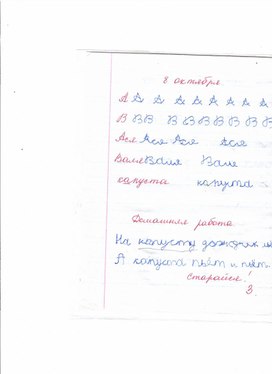 8 октября
А А А А А А А А А
В В В В В В В В В В
Ася Ася Ася Ася
Валя Валя Валя
капуста капуста
Домашняя работа
На капусту дождик
А капуста пьёт и пьёт.
Старайся.
3